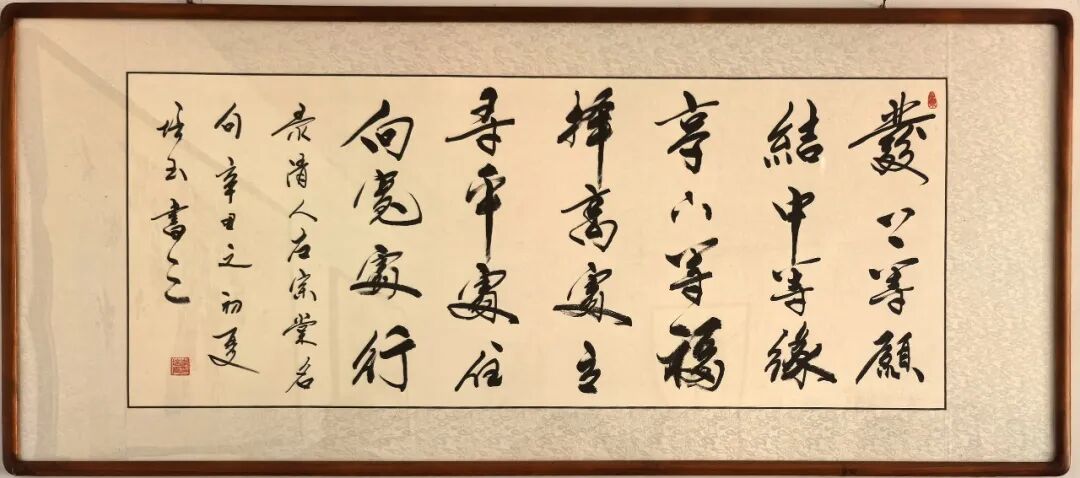 發上等願
結中等緣
享下等福
擇高處立
尋平處住
向寬處行
录清人左宗棠名
句辛丑之初夏
培玉書之